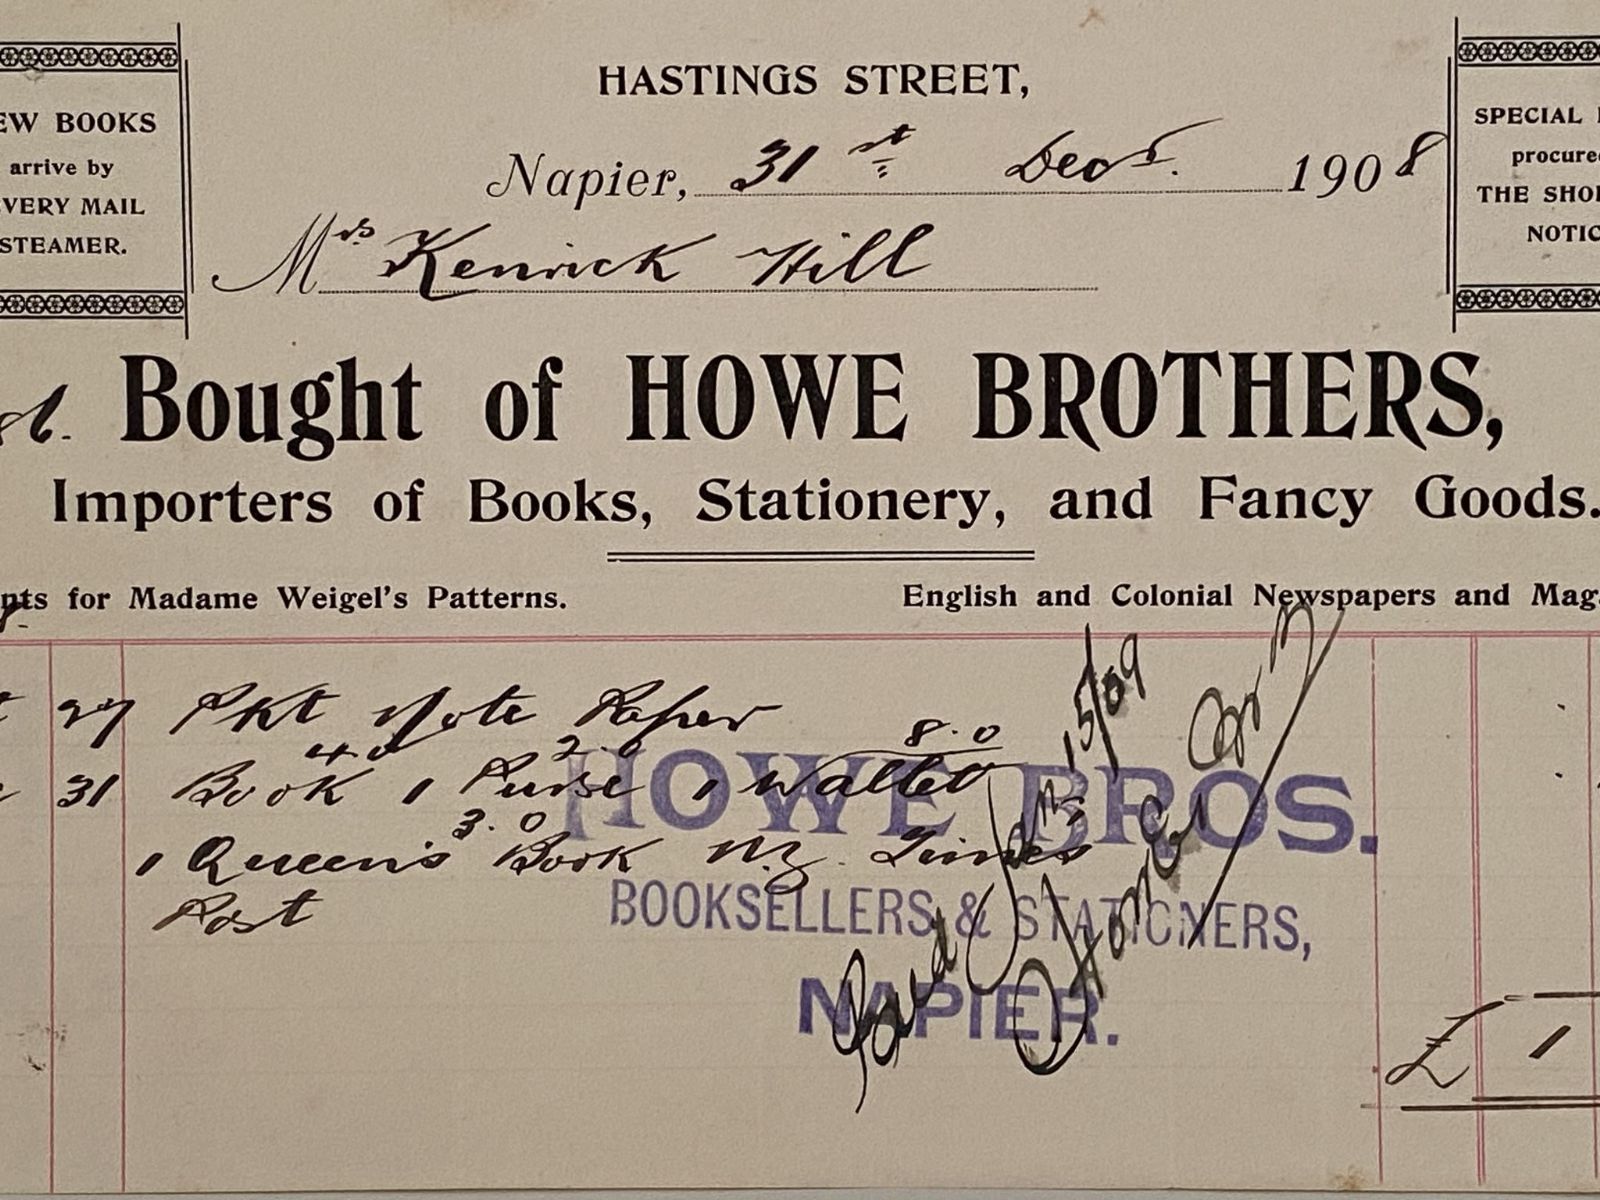 HASTINGS STREET,
EW BOOKS
arrive by
VERY MAIL
STEAMER.
SPECIAL
procure
THE SHO
NOTIC
Napier, 31st Decr. 1908
Mrs Kenrick Hill
Bought of HOWE BROTHERS,
Importers of Books, Stationery, and Fancy Goods.
nts for Madame Weigel's Patterns.
English and Colonial Newspapers and Mag
27 Pkt Note Paper
4 0 2. 0 8. 0
31 Book 1 Purse 1 Wallet
3. 0
1 Queen's Book N.Z. Times
Post
HOWE BROS.
BOOKSELLERS & STATIONERS,
NAPIER.
Paid Jan 15/09
£ 1